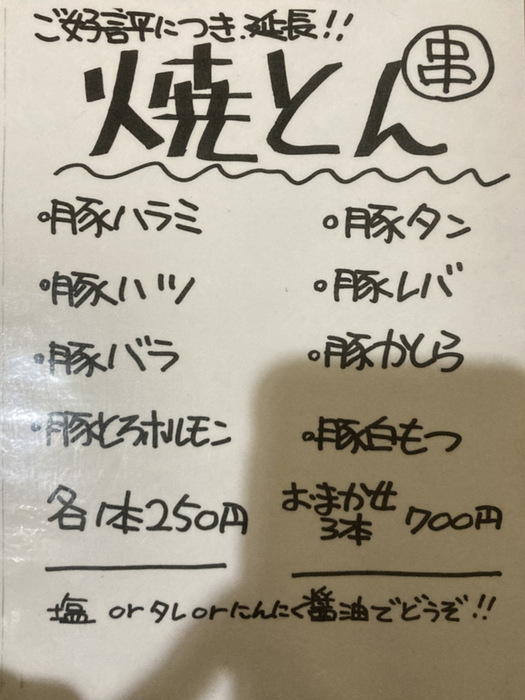 ご好評につき、延長!!
焼とん 串
・豚ハラミ ・豚タン
・豚ハツ ・豚レバ
・豚バラ ・豚かしら
・豚とろホルモン ・豚白もつ
各1本250円 おまかせ3本 700円
塩 or タレ or にんにく醤油でどうぞ!!